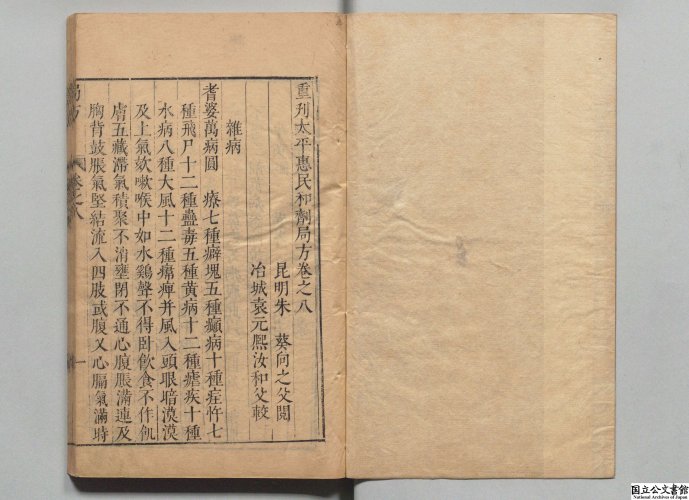 重刋太平惠民和劑局方卷之八
昆明朱　葵向之父閲
冶城袁元熙汝和父較
雜病
耆婆萬病圓　療七種癖塊五種癲病十種疰忤七
種飛尸十二種蠱毒五種黄病十二種瘧疾十種
水病八種大風十二種㾏痺并風入頭眼暗漠漠
及上氣欬嗽喉中如水鷄聲不得卧飲食不作肌
膚五藏滯氣積聚不消壅閉不通心腹脹滿連及
胸背鼓脹氣堅結流入四肢或腹又心膈氣滿時
局方
卷之八
一
国立公文書館
National Archives of Japan